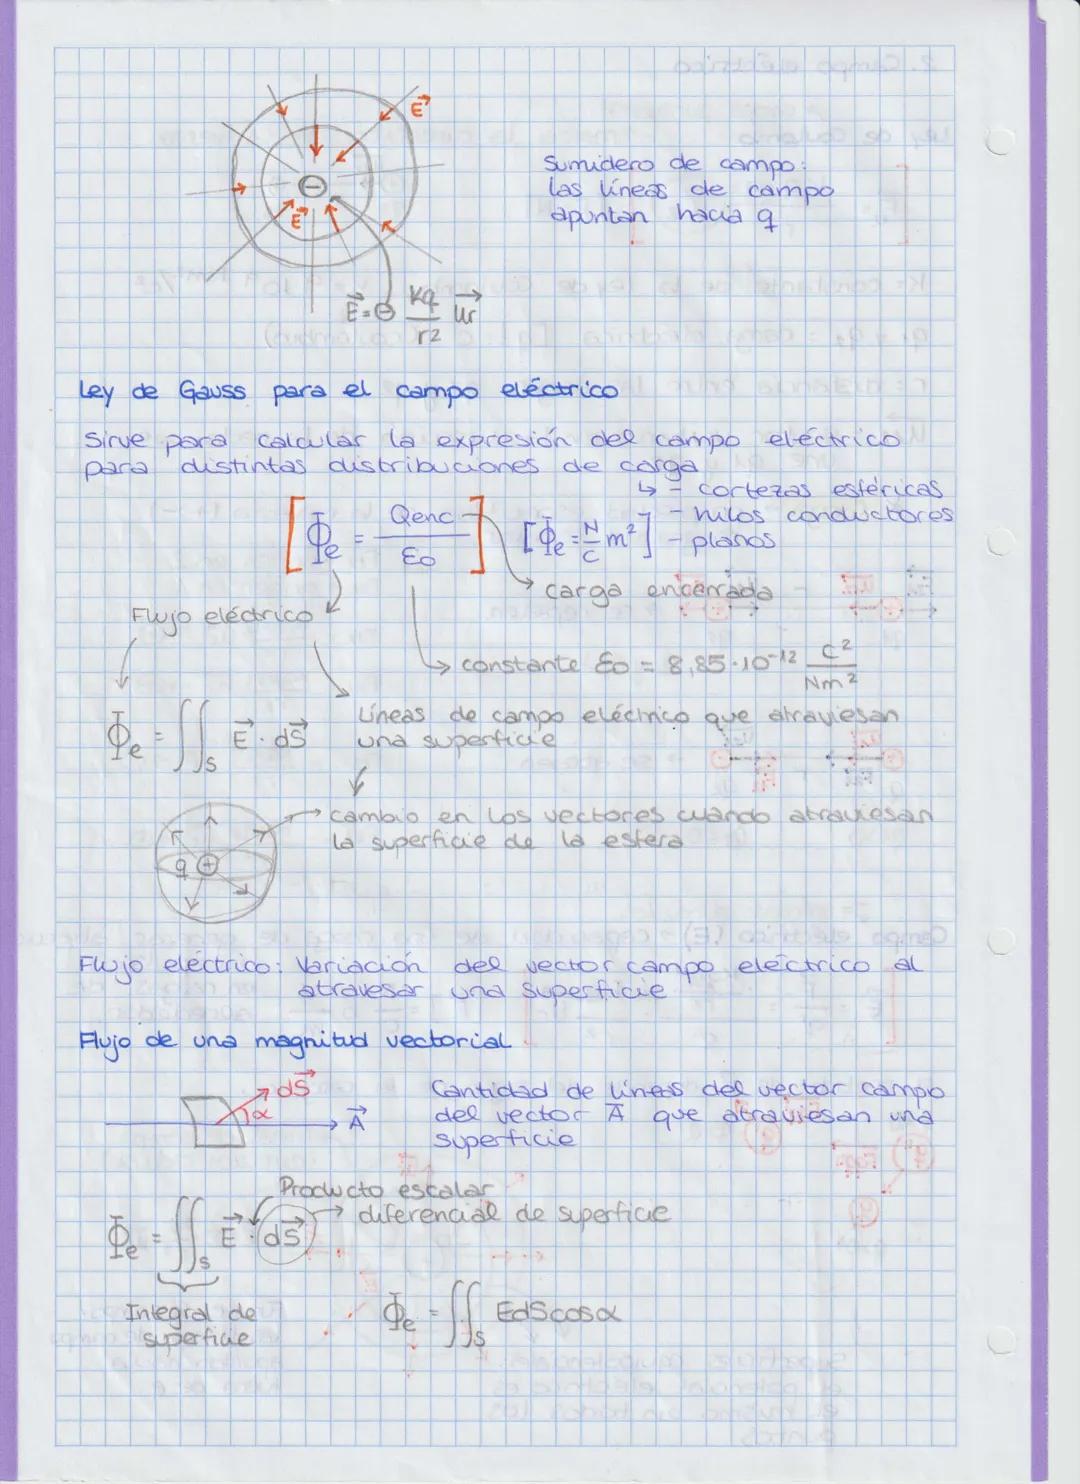 E⃗
Sumidero de campo:
las líneas de campo
apuntan hacia q
E⃗
E⃗ = ⊖ Kq/r2 Ur⃗
Ley de Gauss para el campo eléctrico
Sirve para calcular la expresión del campo eléctrico
para distintas distribuciones de carga
↳ - cortezas esféricas
- hilos conductores
- planos
[Φe = Qenc/εo] [Φe = N/C m²]
carga encerrada
Flujo eléctrico
constante εo = 8,85·10⁻¹² C²/Nm²
Líneas de campo eléctrico que atraviesan
una superficie
Φe = ∬s E⃗ · dS⃗
cambio en los vectores cuando atraviesan
la superficie de la esfera
q +
Flujo eléctrico: Variación del vector campo eléctrico al
atravesar una superficie
Flujo de una magnitud vectorial
dS⃗
α
A⃗
Cantidad de líneas del vector campo
del vector A⃗ que atraviesan una
superficie
Producto escalar
diferencial de superficie
Φe = ∬s E⃗ · dS⃗
Integral de
superficie
Φe = ∬s EdScosα